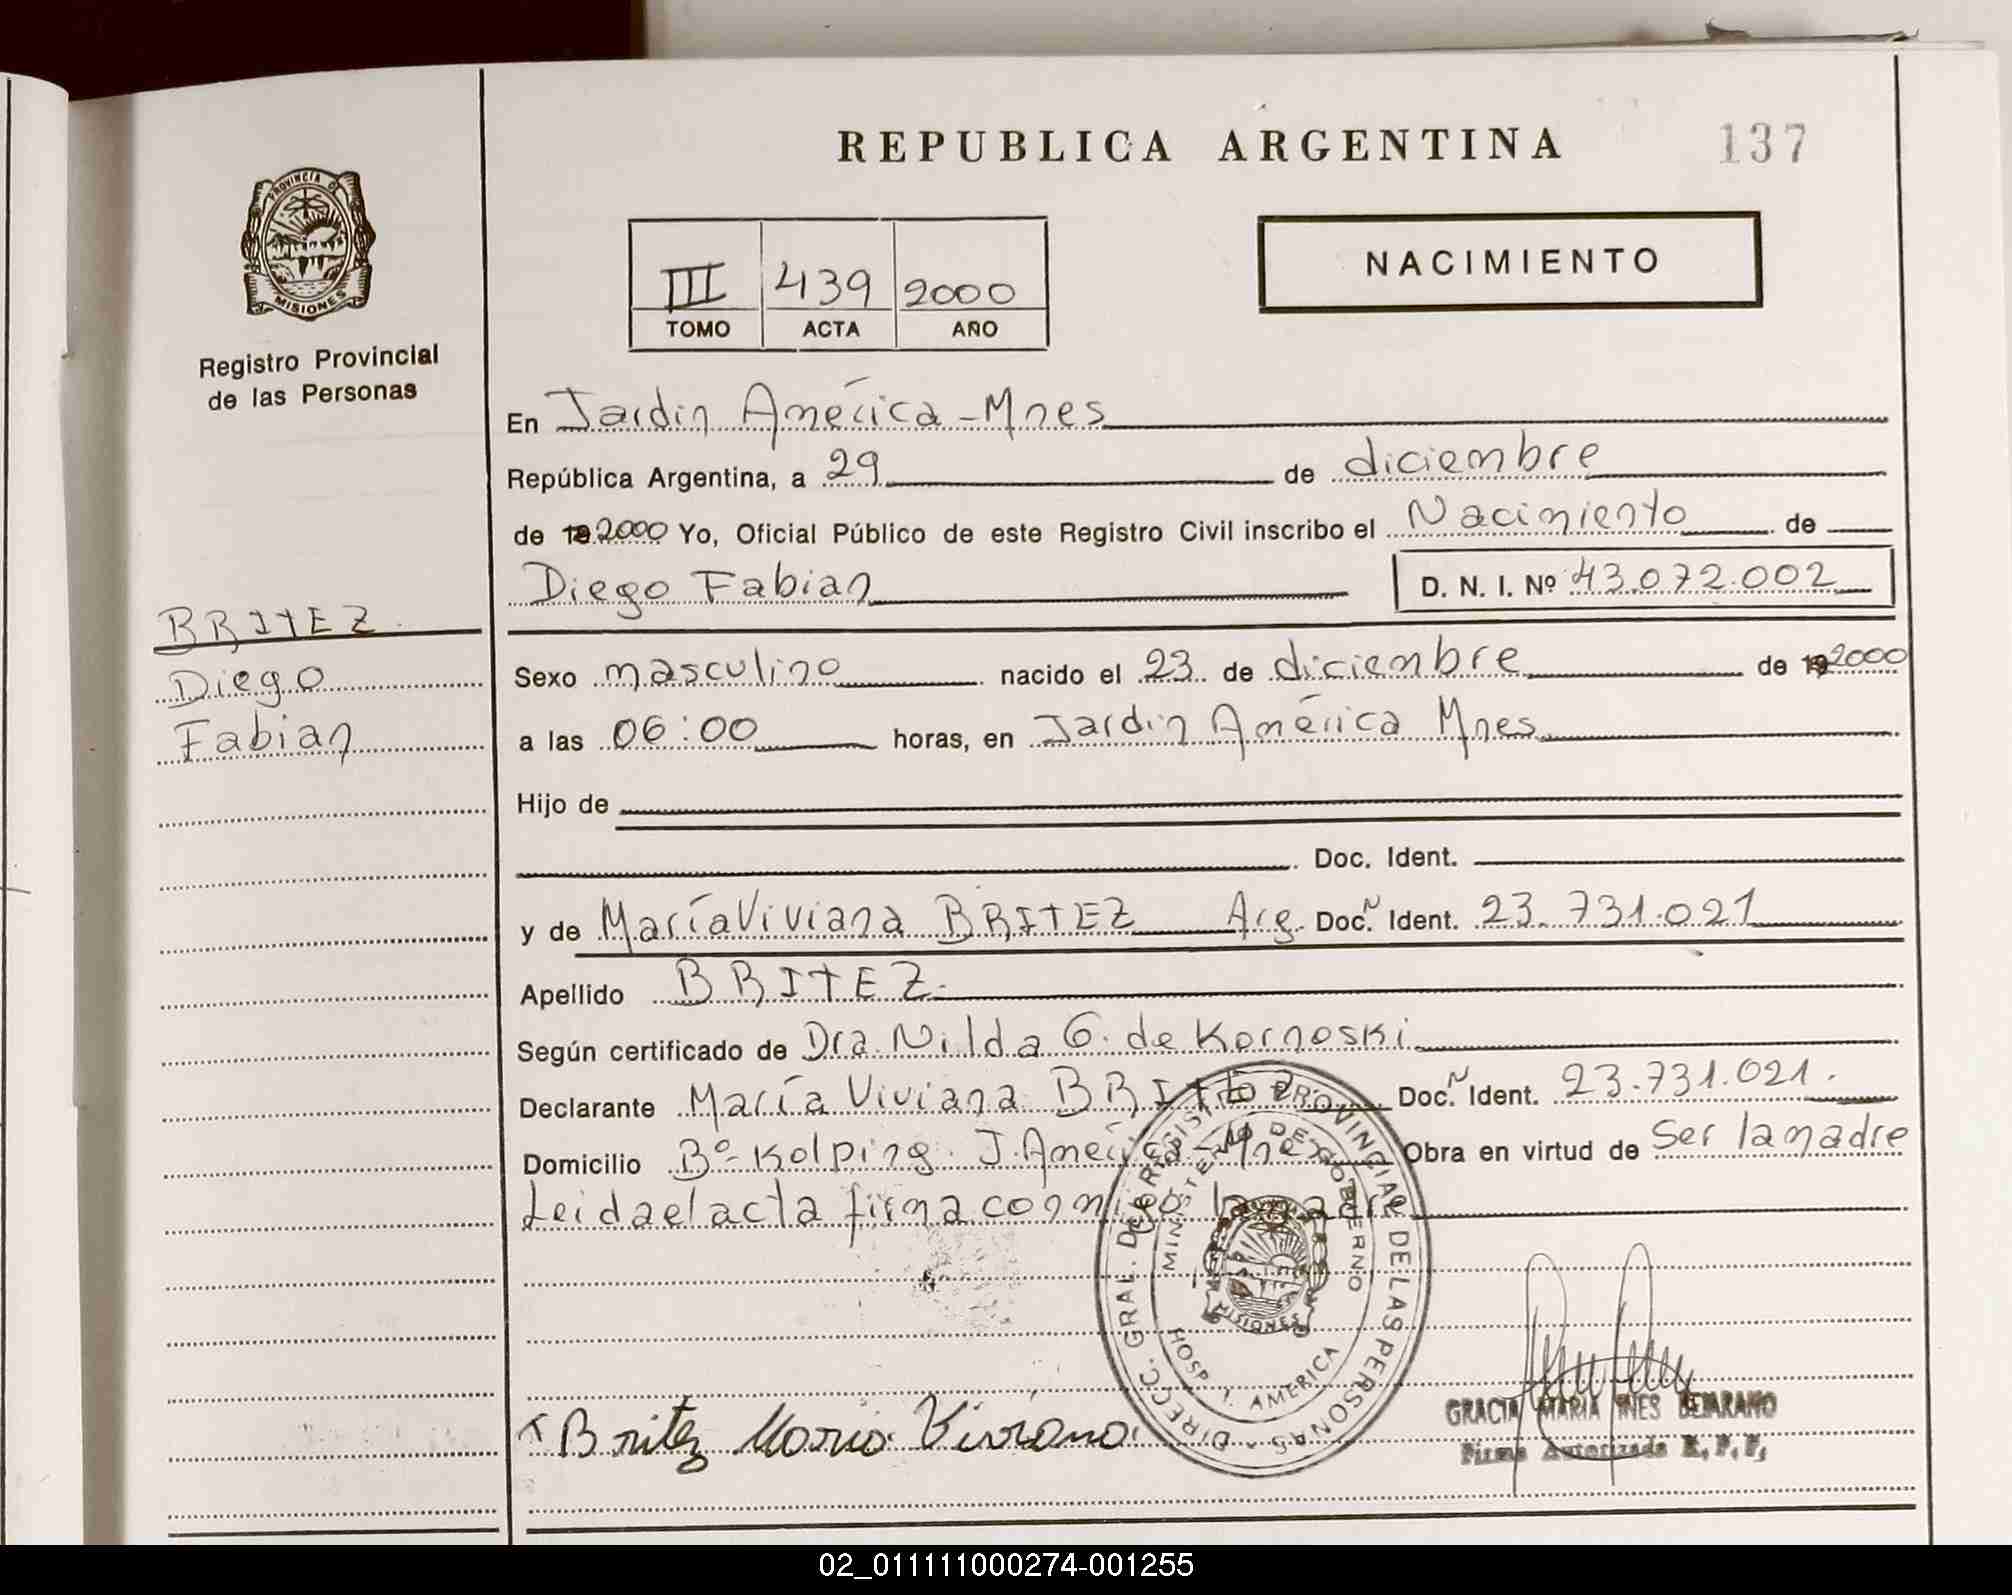 REPUBLICA ARGENTINA
137
PROVINCIA DE
MISIONES
Registro Provincial
de las Personas
III 439 2000
TOMO ACTA AÑO
NACIMIENTO
En Jardin América-Mnes
República Argentina, a 29 de diciembre
de 19 2000 Yo, Oficial Público de este Registro Civil inscribo el Nacimiento de
Diego Fabian D. N. I. Nº 43.072.002
BRITEZ
Diego
Fabian
Sexo masculino nacido el 23 de diciembre de 19 2000
a las 06:00 horas, en Jardin América Mnes
Hijo de
Doc. Ident.
y de María Viviana BRITEZ Arg. Doc. N Ident. 23.731.021
Apellido BRITEZ.
Según certificado de Dra. Nilda G. de Kornoski
Declarante María Viviana BRITEZ Doc. N Ident. 23.731.021.
Domicilio Bº Kolping. J. América-Mnes Obra en virtud de Ser la madre
Leida el acta firma conmigo la madre
DIRECC. GRAL. DEL REGISTRO PROVINCIAL DE LAS PERSONAS
MINISTERIO DE GOBIERNO
HOSP. J. AMERICA
MISIONES
x Britez Maria Viviana
GRACIA MARIA INES BEJARANO
Firma Autorizada R.P.P.
02_011111000274-001255